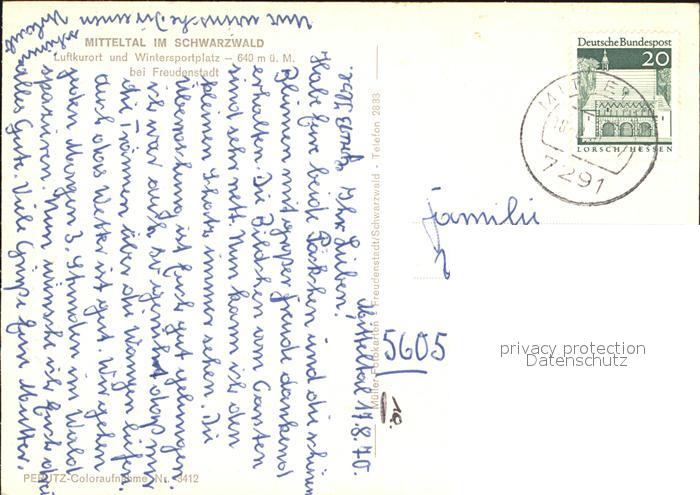 MITTELTAL IM SCHWARZWALD
Luftkurort und Wintersportplatz – 640 m ü. M.
bei Freudenstadt
Mitteltal 14.8.70.
Ihr Lieben.
Habe Eure beide Päckchen und die schönen
Blumen mit großer Freude dankend
erhalten. Die Bildchen vom Carsten
sind sehr nett. Nun kann ich den
kleinen Schatz immer sehen. Die
Überraschung ist Euch gut gelungen
ich war auch so gerührt daß mir
die Tränen über die Wangen liefen
auch das Wetter ist gut. Wir gehen
jeden Morgen 3 Stunden im Wald
spazieren. Nun wünsche ich Euch
alles Gute. Viele Grüße Eure Mutter.
Müller-Fotokarten - Freudenstadt/Schwarzwald - Telefon 2833
PERUTZ-Coloraufnahme Nr. 3412
Deutsche Bundespost
20
LORSCH/HESSEN
7291
Familie
5605
privacy protection
Datenschutz